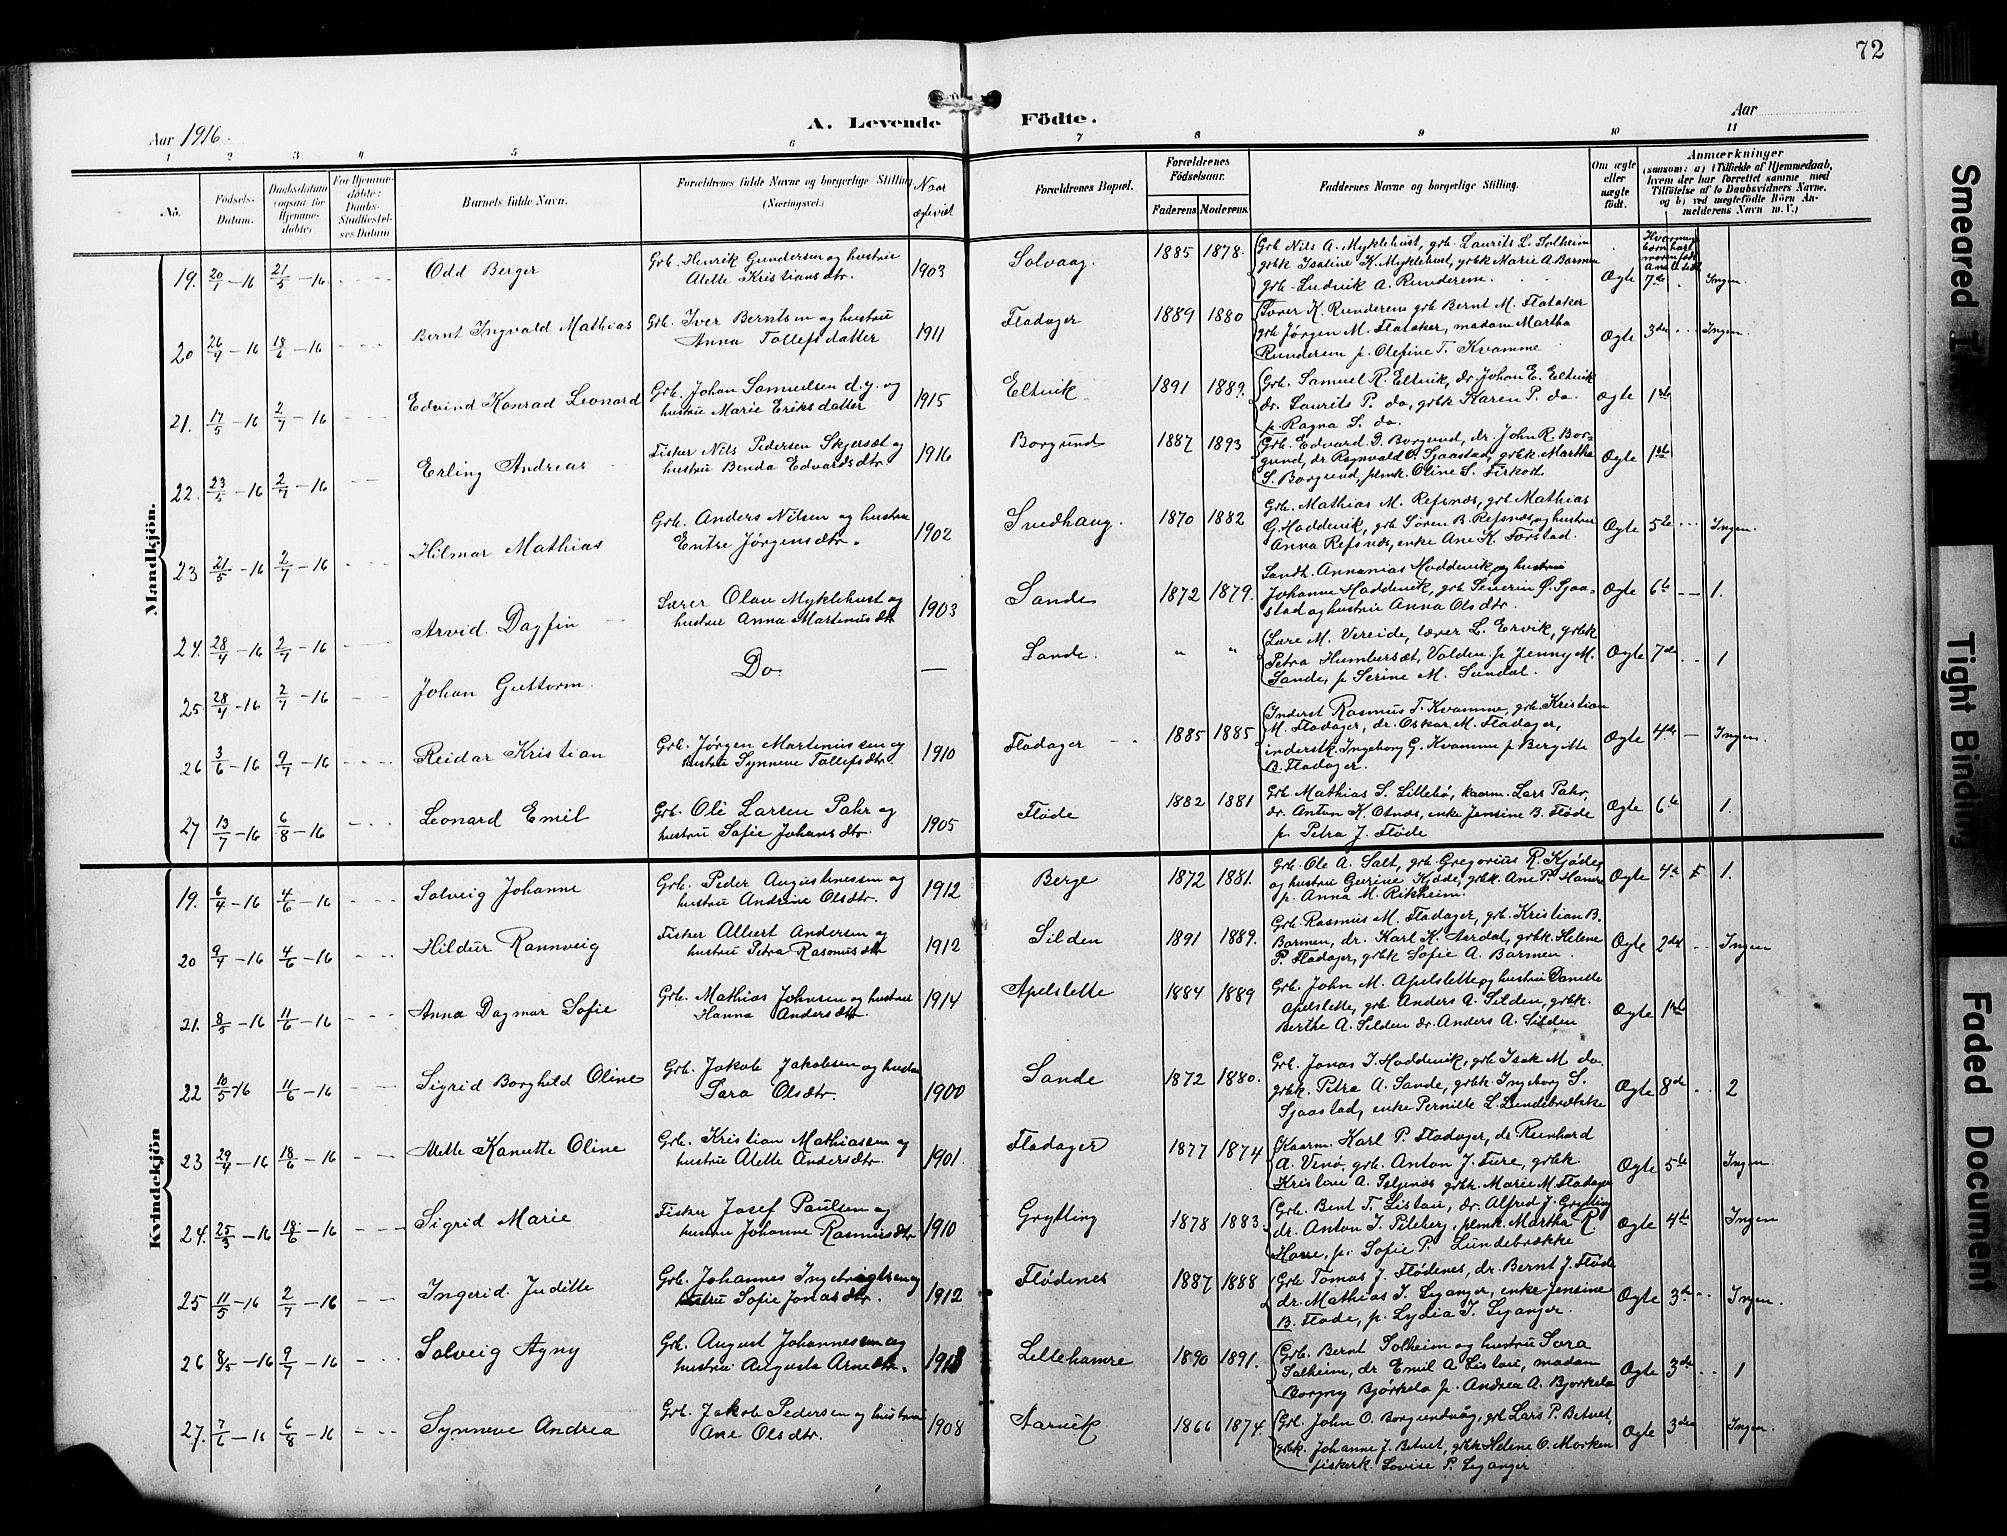 72
Aar 1916.
A. Levende Födte.
Aar
1 2 3 4 5 6 7 8 9 10 11
No. Födsels-Datum. Daabsdatum (ogsaa for Hjemme-döbte) For Hjemme-döbte: Daabs-Stadfæstel-ses Datum Barnets fulde Navn. Forældrenes fulde Navne og borgerlige Stilling (Næringsvei.) Naar ægteviet Forældrenes Bopæl. Forældrenes Födselsaar. Faderens Moderens. Faddernes Navne og borgerlige Stilling. Om ægte eller uægte födt. Anmærkninger (saasom: a) i Tilfælde af Hjemmedaab, hvem der har forrettet samme med Tilföielse af to Daabsvidners Navne. og b) ved uægtefödte Börn An-melderens Navn m. V.)
Mandkjön.
19. 20/1 - 16 21/5 - 16 Odd Berger Grb. Henrik Gundersen og hustru Alette Kristiansdtr. 1903 Solvaag. 1885 1878. Grb Nils A. Myklehust, grb. Laurits L. Solheim
grbk Isaline K. Myklehust, grbk Marie A Barmen
grb. Ludvik A. Runderem. Ægte 7de Ingen.
20 26/4 - 16 18/6 - 16 Bernt Ingvald Mathias Grb. Iver Berntsen og hustru Anna Tollefsdatter 1911 Fladager 1889 1880 Torer K. Runderem grb Bernt M. Flataker
grb Jørgen M. Flataker, madam Martha
Runderem p. Olefine T. Kvamme Ægte 3die Ingen.
21. 17/5 - 16 2/7 - 16 Edvind Konrad Leonard Grb. Johan Samuelsen d.y. og hustru Marie Eriksdatter 1915 Eltvik 1891 1889. Grb. Samuel R. Eltvik, dr Johan E. Eltvik
dr. Laurits P. do, grbk Karen P. do.
p. Ragna S. do. Ægte 1ste
22. 23/5 - 16 2/7 - 16 Erling Andreas Fisker Nils Pedersen Skjersæt og hustru Benda Edvardsdtr. 1916 Borgund 1887 1893 Grb. Edvard D. Borgund, dr. John R. Bor-
gund, dr Ragnvald O. Sjaastad, grbk. Martha
S. Borgund, plmk. Oline S. Firkott Ægte 1ste
23 21/5 - 16 2/7 - 16 Hilmar Mathias Grb. Anders Nilsen og hustru Entre Jørgensdtr. 1902 Svedhaug. 1870 1882 Grb. Mathias M. Refsnæs, grb. Mathias
O. Hoddevik, grb Søren B. Refsnæs, og hustru
Anna Refsnæs, enke Ane K. Forstad. Ægte 5te Ingen.
24. 28/4 - 16 2/7 - 16 Arvid Dagfin Lærer Olav Myklehust og hustru Anna Martinusdtr 1903 Sande 1872 1879. Landh. Annanias Hoddevik og hustru
Johanne Hoddevik, grb Severin Ø. Sjaa-
stad og hustru Anna Olsdtr. Ægte 6te 1.
25 28/4 - 16 2/7 - 16 Johan Guttorm. Do. — Sande. " " Lære M. Vereide, lærer L. Ervik, grbk
Petra Humbersæt, Volden. p. Jenny M.
Sande, p Serine M. Sundal. Ægte 7de 1
26 3/6 - 16 9/7 - 16 Reidar Kristian Grb. Jørgen Martinussen og hustru Synneve Tollefsdtr. 1910 Fladager 1885 1885 Inderst Rasmus T. Kvamme, grb. Kristian
M. Fladager, dr. Oskar M. Fladager,
inderstk. Ingeborg G. Kvamme p Bergitte
B. Fladager. Ægte 4de Ingen.
27 13/7 - 16 6/8 - 16 Leonard Emil Grb. Ole Larsen Pahr og hustru Sofie Johansdtr. 1905 Fløde 1882 1881 Grb Mathias S. Lillebö, kaarm. Lars Pahr,
dr. Anton K. Otnæs, enke Jensine B. Fløde
p. Petra J. Fløde Ægte 6te 1.
Kvindekjön
19. 6/4 - 16 4/6 - 16 Solveig Johanne Grb. Peder Augustinussen og hustru Andrine Olsdtr. 1912 Berge 1872 1881. Grb. Ole A. Salt, grb Gregorius R. Kjøde
og hustru Gurine Kjøde, grbk. Ane P. Hamre
p. Anna M. Rikheim. Ægte 4de 1.
20 9/4 - 16 4/6 - 16 Hildur Rannveig Fisker Albert Andersen og hustru Petra Rasmusdtr 1912 Silden 1891 1889. Grb Rasmus M. Fladager, grb. Kristian B.
Barmen, dr. Karl K. Aardal, grbk. Helene
P. Fladager, grbk Sofie A. Barmen. Ægte 2det Ingen
21. 8/5 - 16 11/6 - 16 Anna Dagmar Sofie Grb. Mathias Johnsen og hustru Hanna Andersdtr. 1914 Apelslette 1884 1889 Grb. John M. Apelslette og hustru Danette
Apelslette, grb. Anders A. Silden, grbk.
Berthe A. Silden dr. Anders A. Silden Ægte 1ste
22 10/5 - 16 11/6 - 16 Sigrid Borghild Oline Grb. Jakob Jakobsen og hustru Sara Olsdtr. 1900 Sande 1872 1880. Grb. Jonas J. Hoddevik, grb Isak M do.
grbk. Petra A. Sande, grbk. Ingeborg S.
Sjaastad, enke Pernille L. Lundebrække Ægte 8de 2
23 29/4 - 16 18/6 - 16 Alette Kanutte Oline Grb. Kristian Mathiassen og hustru Alette Andersdtr. 1901. Fladager 1877 1874 Kaarm. Karl P. Fladager, dr. Reinhard
A. Venø, grb. Anton J. Fure, grbk
Kristovi A. Seljenæs grbk. Marie M. Fladager Ægte 5te Ingen.
24. 25/3 - 16 18/6 - 16 Sigrid Marie Fisker Josef Paulsen og hustru Johanne Rasmusdtr 1910 Grytting 1878 1883. Grb. Bent T. Lislau, dr. Alfred J. Grytting
dr. Anton I. Pileberg, plmk. Martha R.
Harre, p. Sofie P. Lundebrække Ægte 4de Ingen
25 11/5 - 16 2/7 - 16 Ingerid Juditte Grb. Johannes Ingebrigtsen og hustru Sofie Jonasdtr. 1912 Flødenes 1887 1888 Grb Tomas J. Flødenes, dr. Bernt J. Fløde
dr. Mathias I. Leganger, enke Jensine
B. Fløde, p. Lydia I. Leganger. Ægte 3die Ingen.
26 8/5 - 16 9/7 - 16 Solveig Agny Grb. August Johannessen og hustru Augusta Arnedtr. Lillehamre 1890 1891. Grb. Bernt Solheim og hustru Sara
Solheim, dr Emil A Lislau, madam
Borgny Bjørkelo p. Andrea A. Bjørkelo Ægte 3die 1
27. 7/6 - 16 6/8 - 16 Synneve Andrea Grb. Jakob Pedersen og hustru Ane Olsdtr. 1908 Aarvik 1866 1874. Grb. John O. Borgundvåg, grb Lars P. Betvet,
grbk. Johanne J. Betvet, grbk Helene O. Morken
fiskerk. Lovise P. Leganger Ægte 3die Ingen.
Smeared
Tight Binding
Faded Document